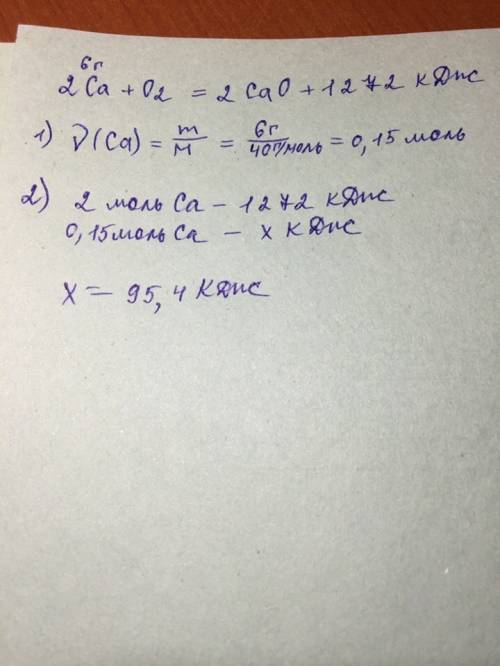 6г
2Ca + O2 = 2CaO + 1272 кДж
1) ν(Ca) = m/M = 6г/40г/моль = 0,15 моль
2) 2 моль Ca - 1272 кДж
0,15 моль Ca - x кДж
X = 95,4 КДж